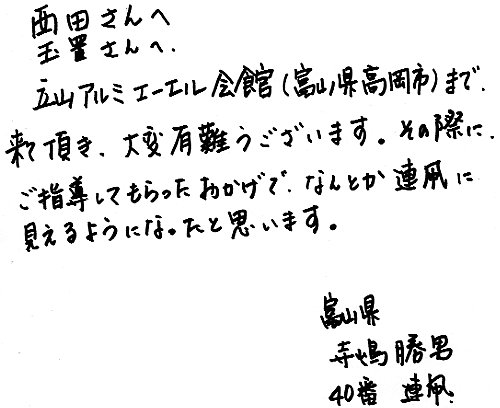 西田さんへ
玉置さんへ.
立山アルミエーエル会館(富山県高岡市)まで.
来て頂き、大変有難うございます。その際に.
ご指導してもらったおかげで、なんとか連凧に
見えるようになったと思います。
富山県
寺嶋勝男
40番 連凧.